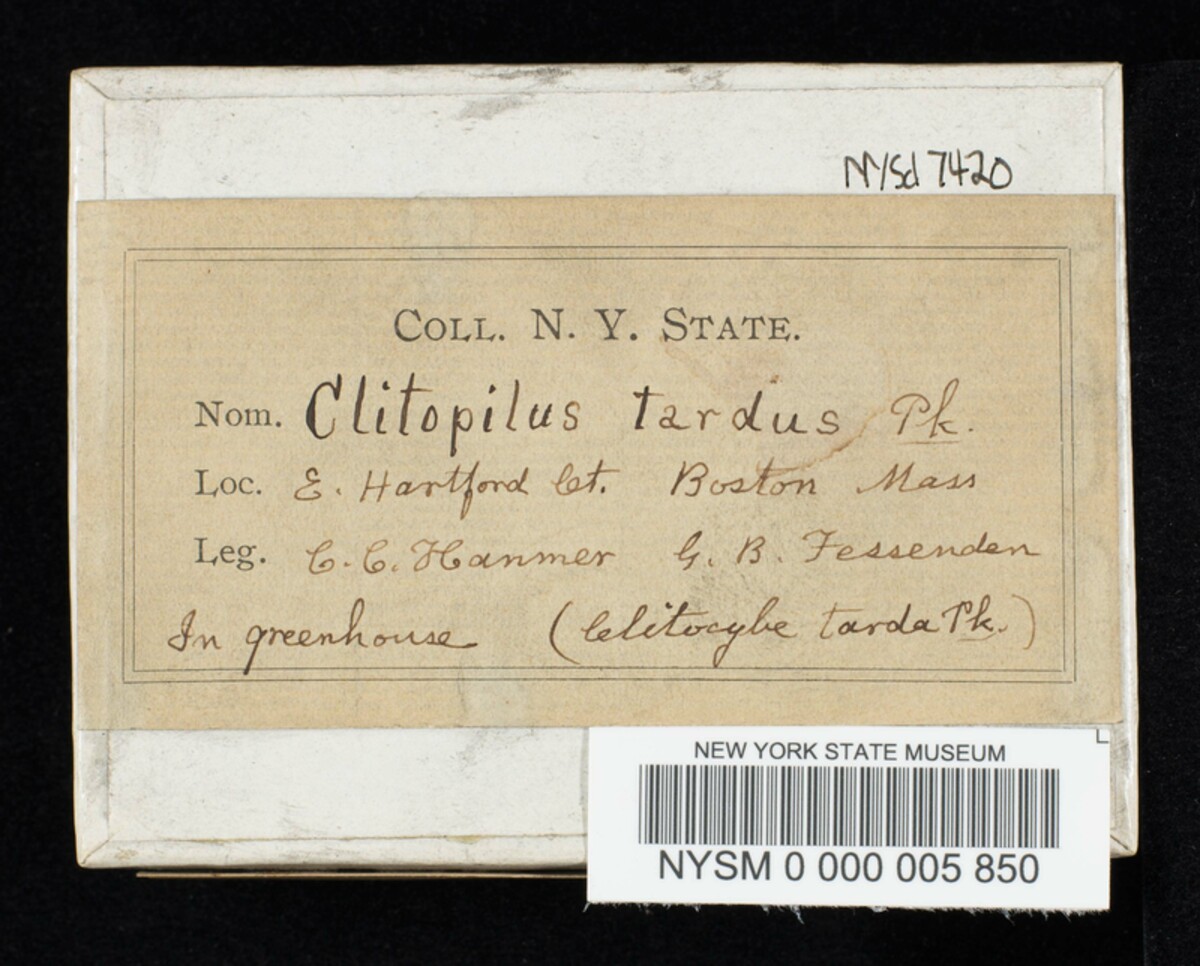 NYSd 7420
COLL. N. Y. STATE.
Nom. Clitopilus tardus Pk.
Loc. E. Hartford Ct. Boston Mass
Leg. C. C. Hanmer G. B. Fessenden
In greenhouse (Clitocybe tarda Pk.)
NEW YORK STATE MUSEUM
NYSM 0 000 005 850